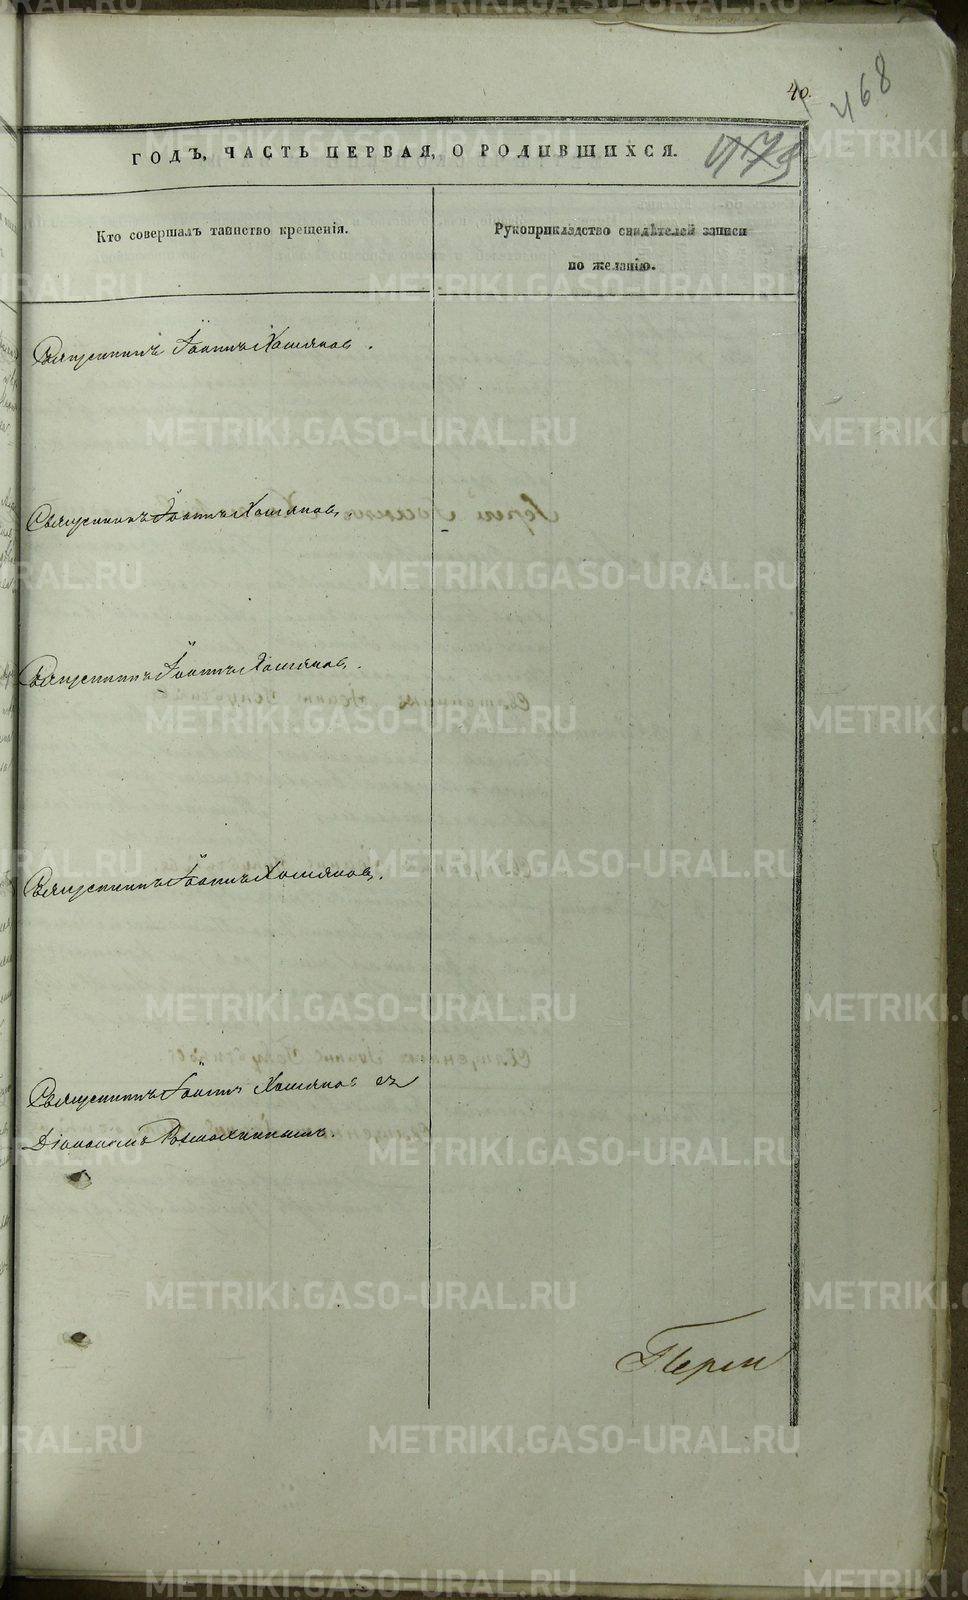 40.
468
ГОДЪ, ЧАСТЬ ПЕРВАЯ, О РОДИВШИХСЯ.
Кто совершалъ таинство крещенія.
Рукоприкладство свидѣтелей записи
по желанію.
Священникъ Іоаннъ Хотяновъ.
Священникъ Іоаннъ Хотяновъ.
Священникъ Іоаннъ Хотяновъ.
Священникъ Іоаннъ Хотяновъ.
Священникъ Іоаннъ Хотяновъ съ
Діакономъ
METRIKI.GASO-URAL.RU